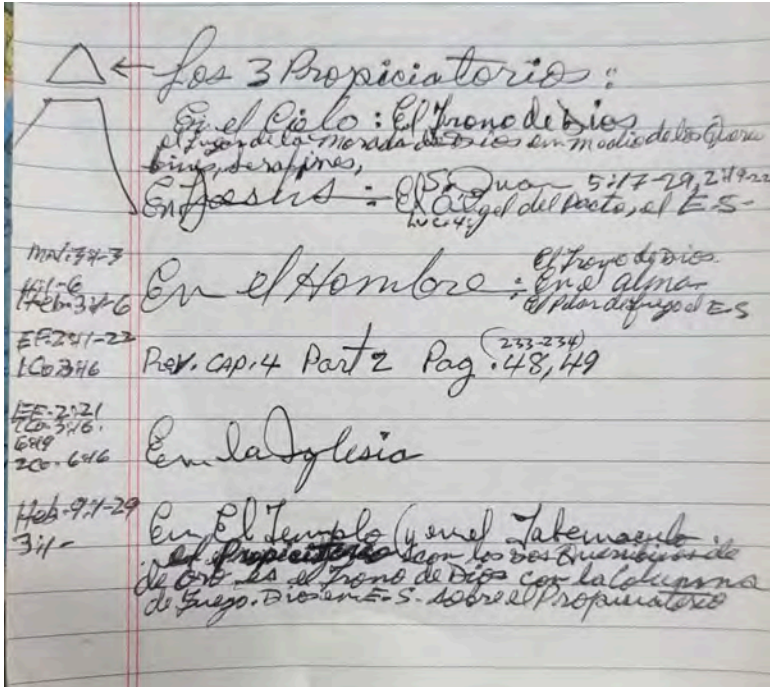 ← Los 3 Propiciatorios:
En el Cielo: El Trono de Dios
el lugar de la morada de Dios en medio de los Quere
bines, serafines,
S. Juan 5:17-29, 2:19-22
En Jesus: El Angel del Pacto, el E-S-
Luc. 4:
Mal: 3:1-3
El Trono de Dios
En el Hombre: En el alma
El Pilar de fuego el E-S
1:1-6
Heb-3:1-6
EF-2:11-22
1Co 3:16
(233-234)
Rev. CAP. 4 Part 2 Pag. 48, 49
EF-2:21
1Co-3:16.
6:19
2Co-6:16
En la Iglesia
Heb-9:1-29
3:1-
En El Templo (y en el Tabernaculo
el Propiciatorio con los Dos Querubines de
de oro es el Trono de Dios con la Columna
de Fuego. Dios en E-S- sobre el Propiciatorio